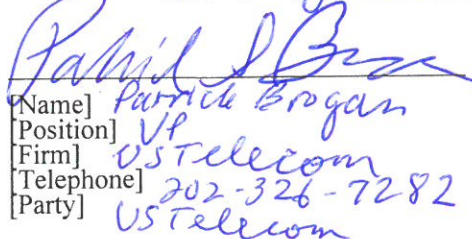 Patrick S Brogan
[Name] Patrick Brogan
[Position] VP
[Firm] USTelecom
[Telephone] 202-326-7282
[Party] USTelecom